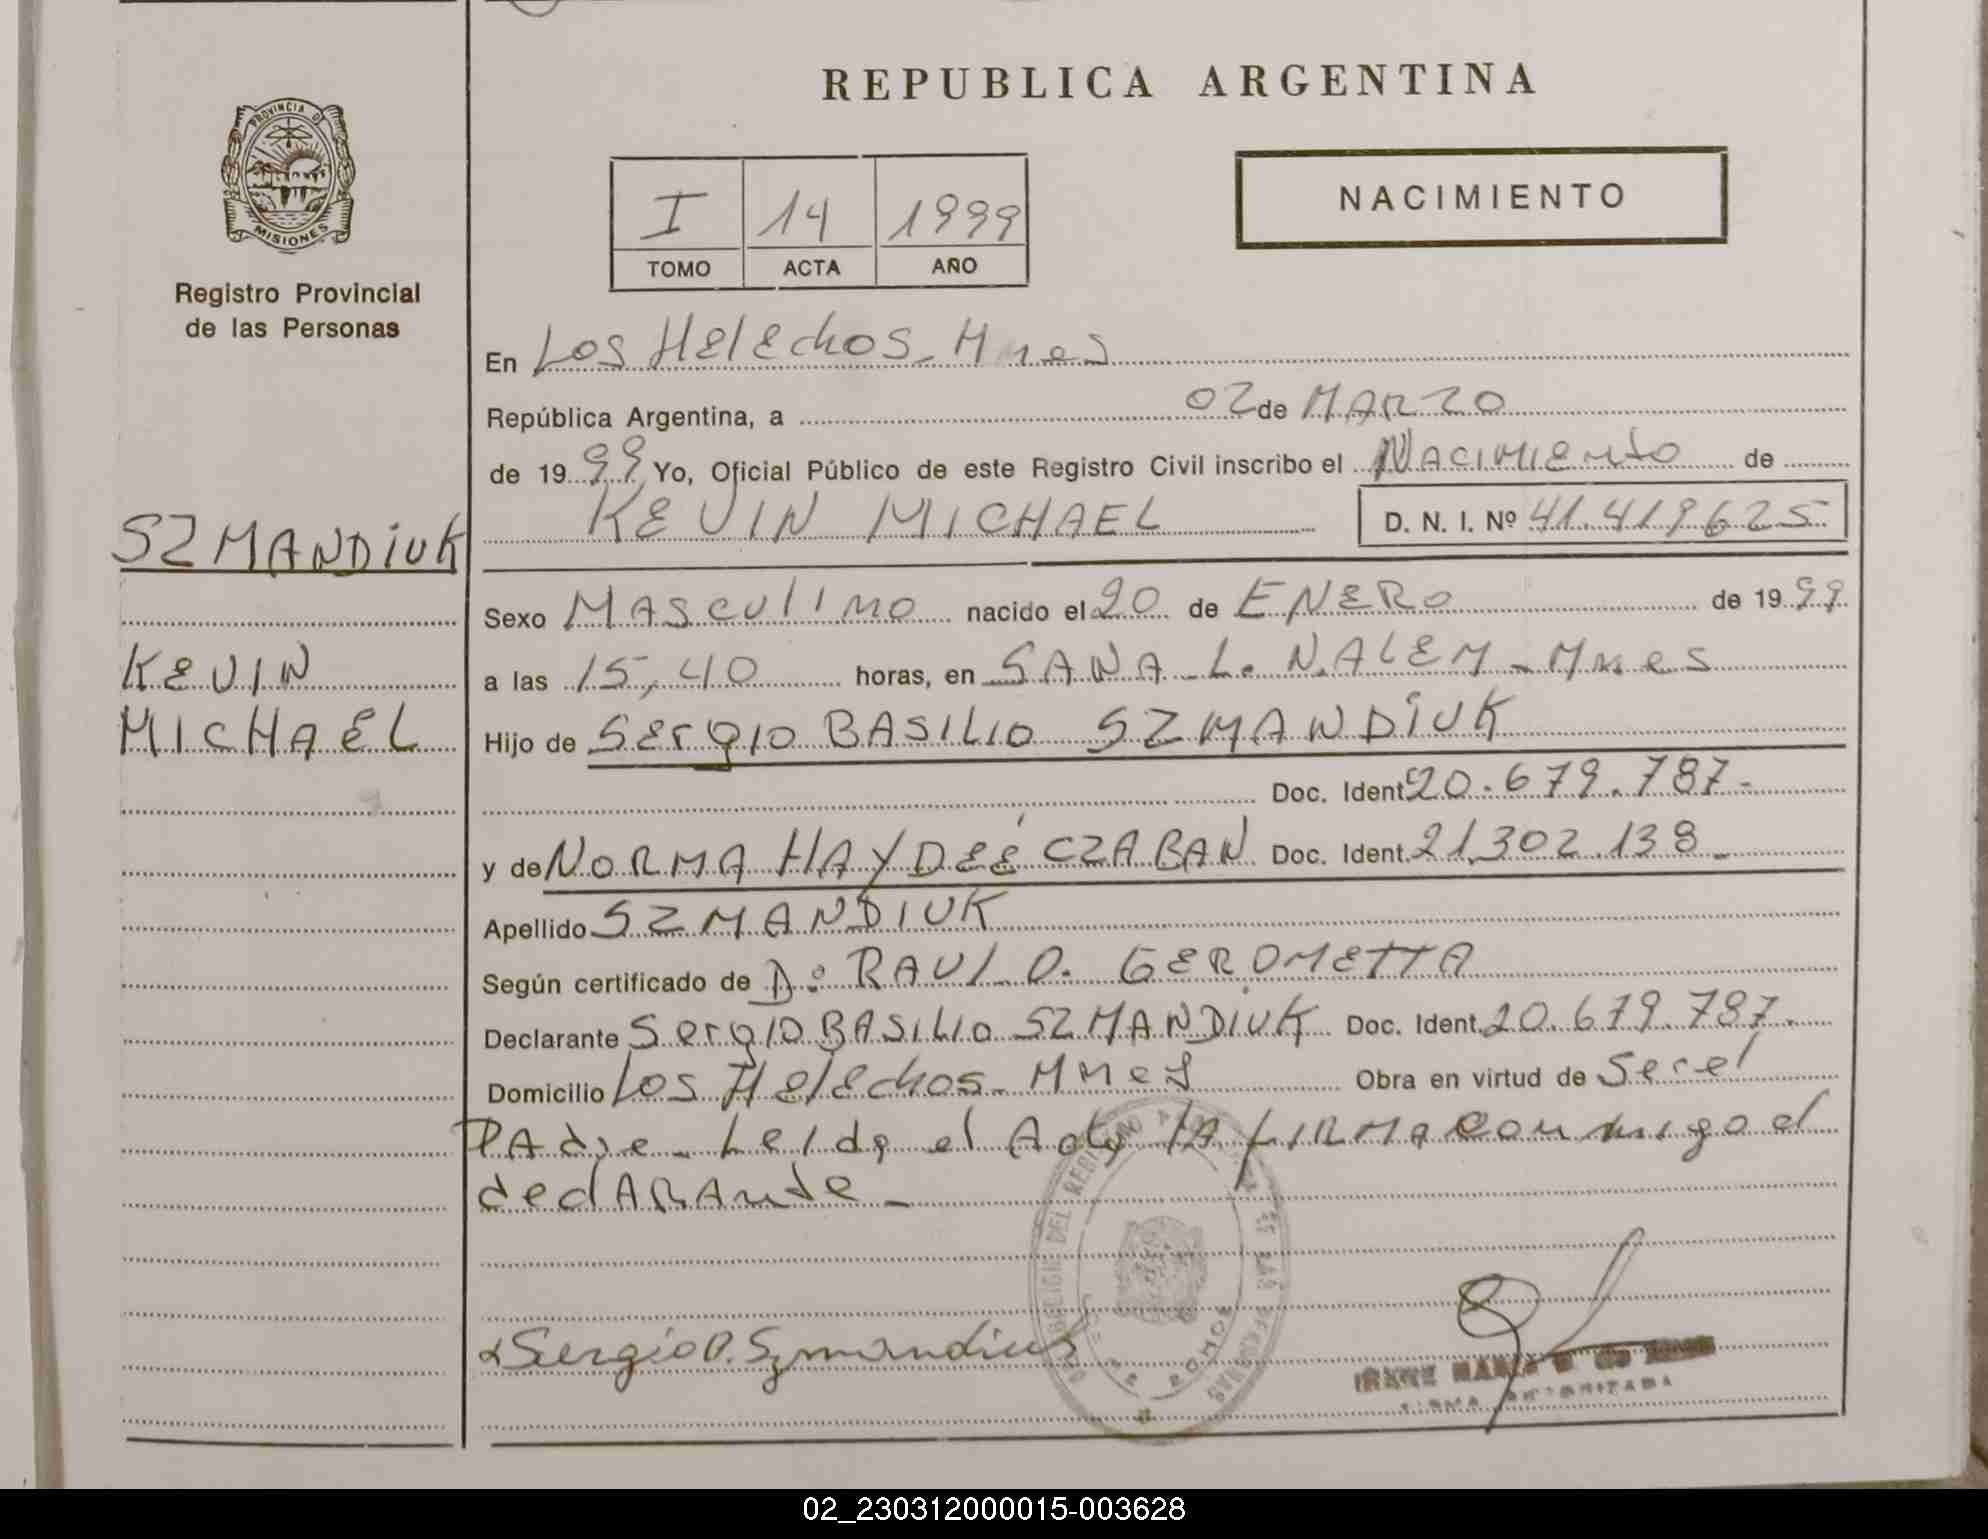 REPUBLICA ARGENTINA
PROVINCIA D
MISIONES
Registro Provincial
de las Personas
I 14 1999
TOMO ACTA AÑO
NACIMIENTO
En Los Helechos - Mnes
República Argentina, a 02 de MARZO
de 1999 Yo, Oficial Público de este Registro Civil inscribo el Nacimiento de
KEVIN MICHAEL D. N. I. Nº 41.419625
SZMANDIUK
KEVIN
MICHAEL
Sexo MASCULINO nacido el 20 de ENERO de 1999
a las 15,40 horas, en SANA - L. N. ALEM - Mnes
Hijo de Sergio BASILIO SZMANDIUK
Doc. Ident 20.679.787.-
y de NORMA HAYDEÉ CZABAN Doc. Ident. 21.302.138 -
Apellido SZMANDIUK
Según certificado de Dº RAUL O. GEROMETTA
Declarante Sergio BASILIO SZMANDIUK Doc. Ident. 20.679.787.-
Domicilio Los Helechos - Mnes Obra en virtud de Ser el
PAdre - Leida el Acta lA FIRMA conmigo el
declARAnte -
Sergio B. Szmandiuk
IRENE MARIA
FIRMA AUTORIZADA
02_230312000015-003628